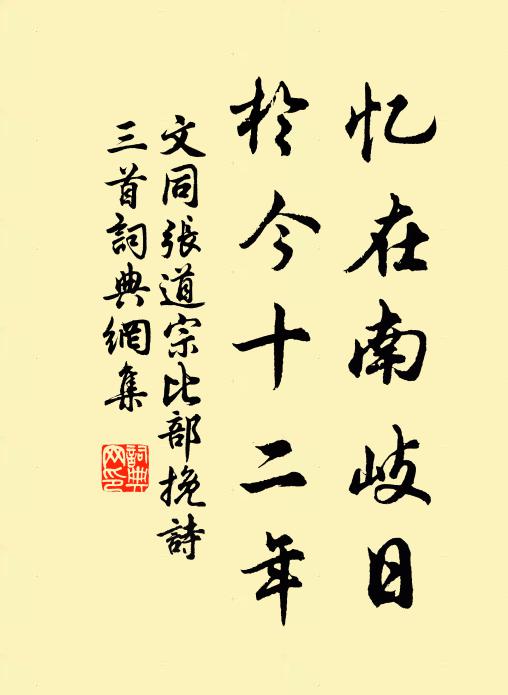 忆在南岐日
於今十二年
文同張道宗比部挽詩
三首詞典網集
詞典
网印